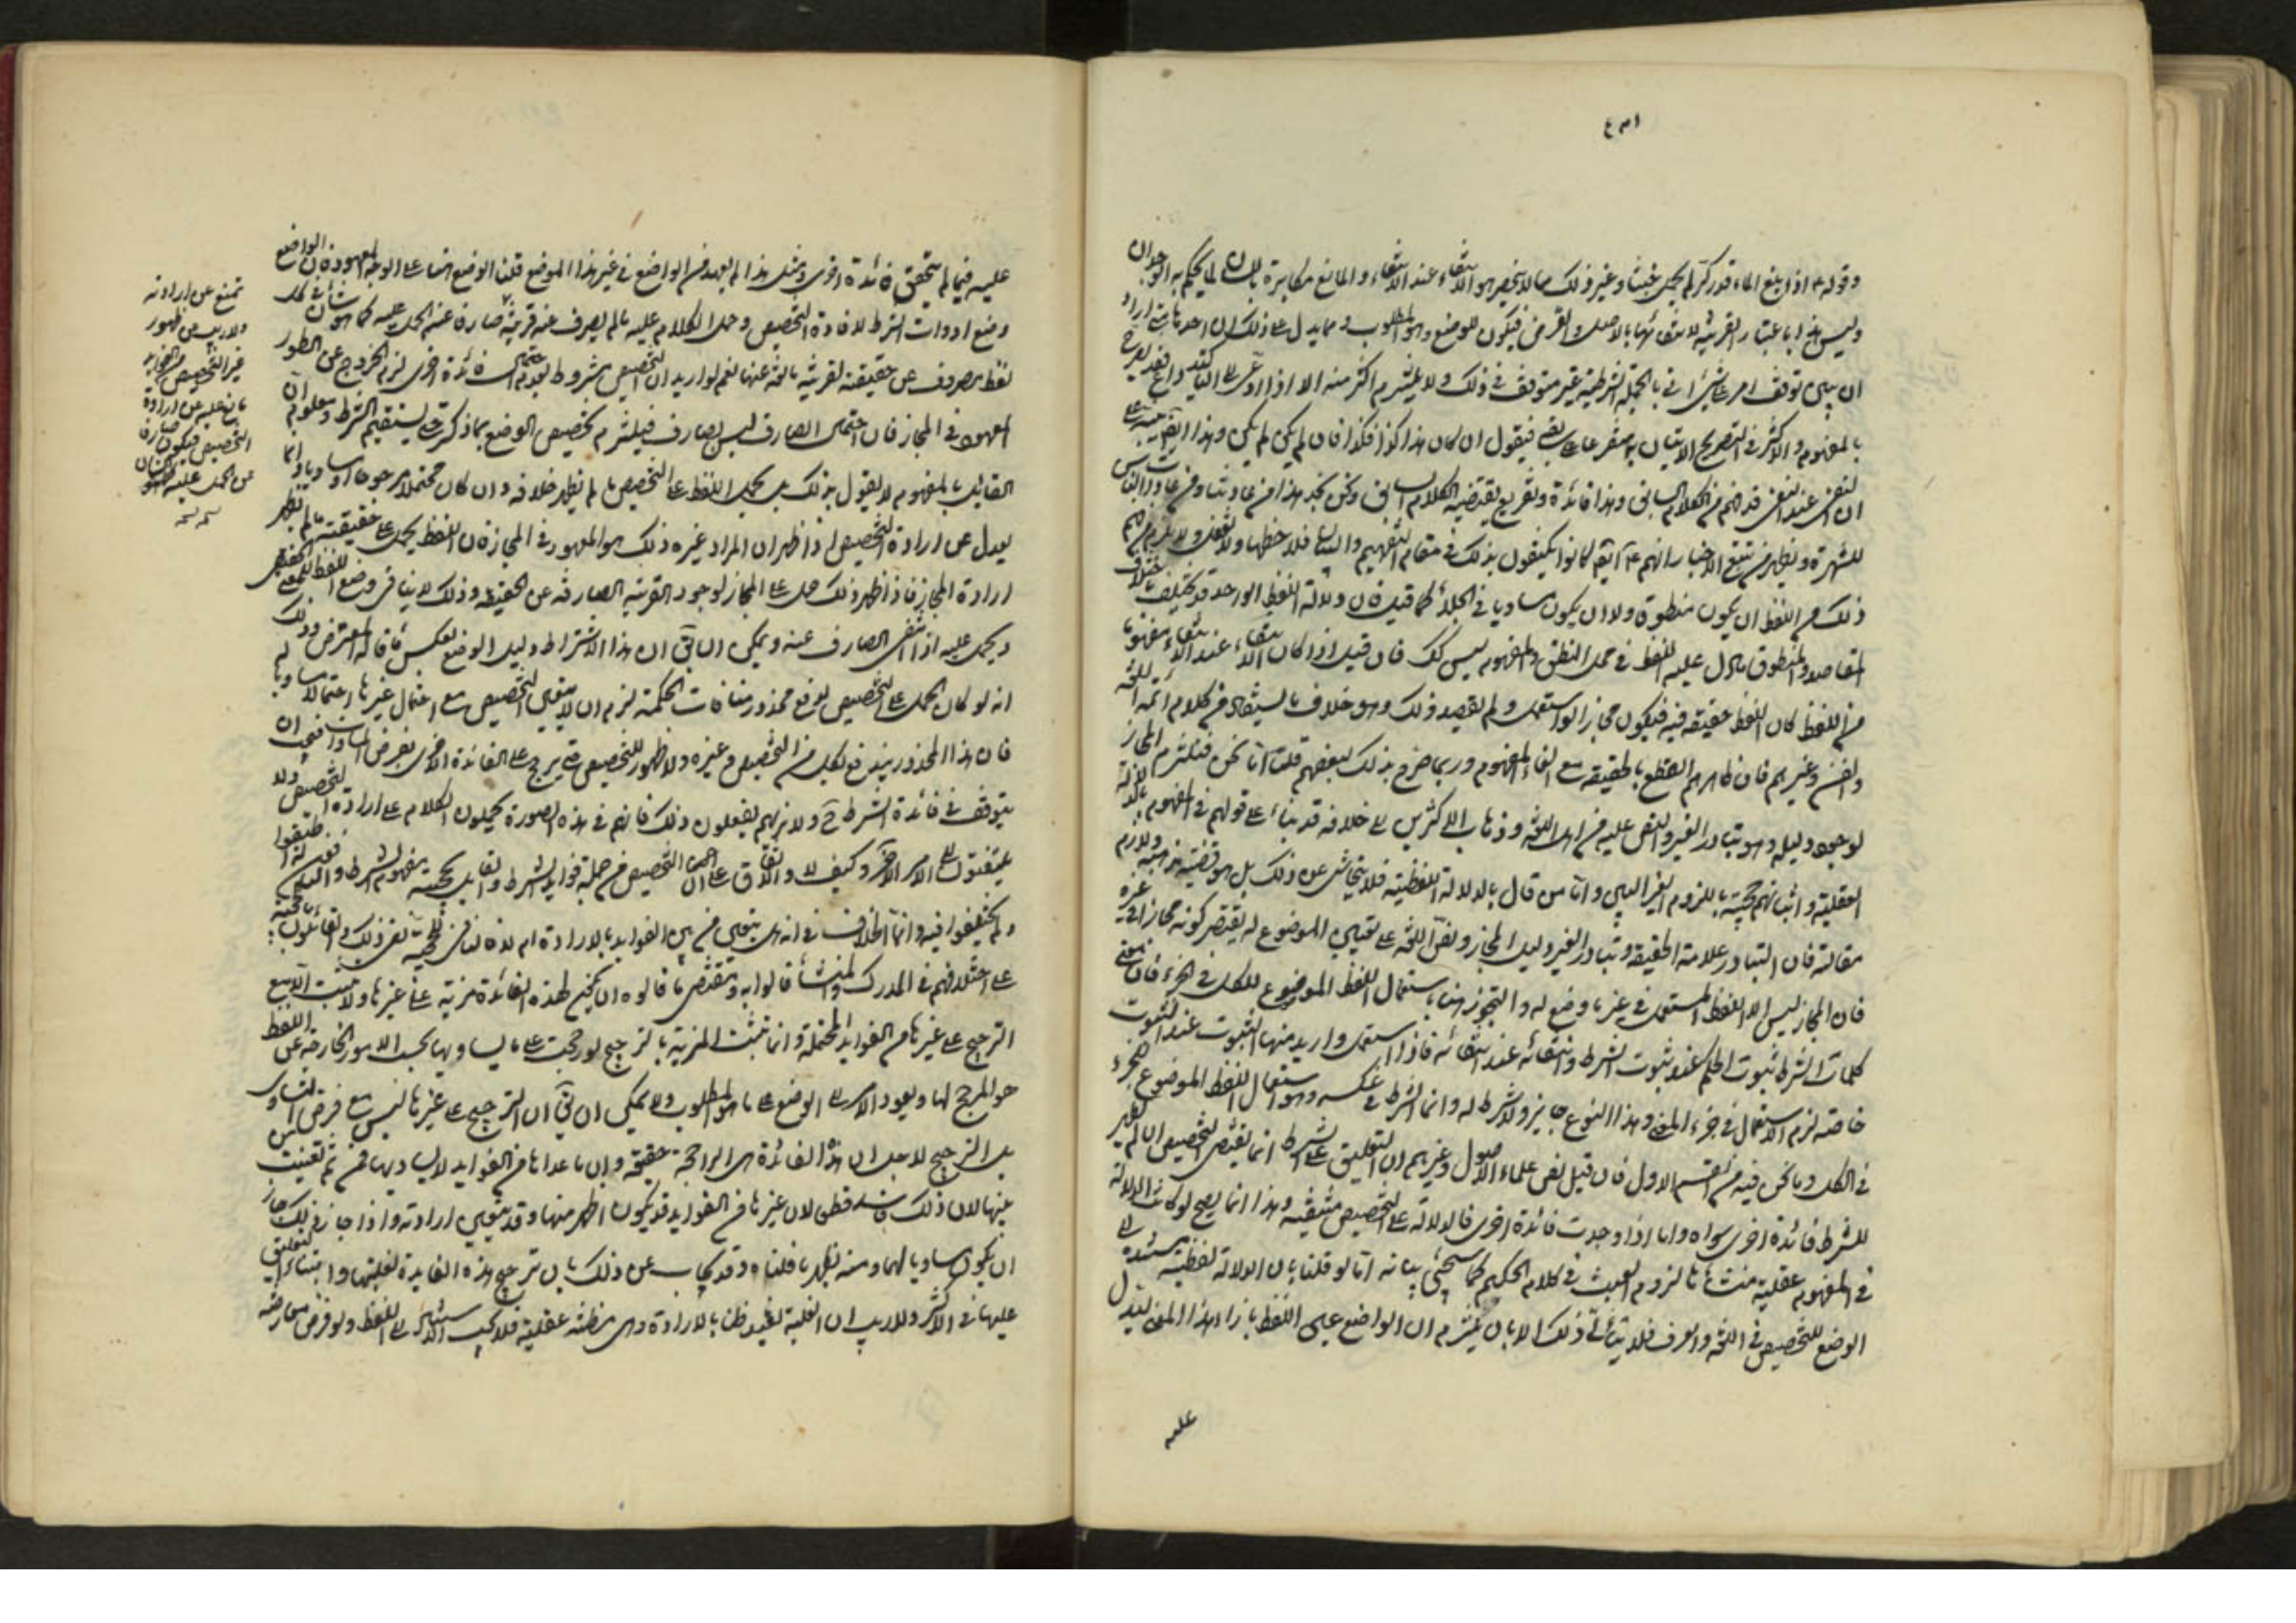 وقوله ع اذا بلغ الماء قدر كر لم يحمل خبثا وغير ذلك مما لا ينحصر هو الانتفاء عند الانتفاء والمانع مكابرة بلسانه لما يحكم به الوجدان
وليس هذا باعتبار القرينة لانتفائها بالاصل والفرض فيكون للوضع وهو المطلوب ومما يدل على ذلك ان احدنا اذا اراد
ان يبين توقف امر على شئ اتى بالجملة الشرطية غير متوقف في ذلك ولا يلتزم اكثر منه الا اذا ادعى الى التاكيد
بالمفهوم والاكثر في التصريح الاتيان به متفرعا على سابقه فيقول ان كان هذا كذا فكذا فان لم يكن لم يكن وهذا
ان النفى عند النفى قد فهم من الكلام السابق وهذا فائدة وتفريع يقتضيه الكلام السابق ونحن نجد هذا من عادتنا ومن عادة الناس
للشهرة ويظهر من تتبع الاخبار انهم ع كانوا يكتفون بذلك في مقام التفهيم والبيان فلاحظها ولا تغفل ولا يلزم من فهم
ذلك من اللفظ ان يكون منطوقا ولا ان يكون مساويا في الجلاء كما قيل فان دلالة اللفظ الواحد قد تختلف باختلاف
المقاصد والمنطوق ما دل عليه اللفظ في محل النطق والمفهوم ليس كك فان قيل اذا كان الانتفاء عند الانتفاء مفهوما
من اللفظ كان اللفظ حقيقة فيه فيكون مجازا لو استعمل ولم يقصد ذلك وهو خلاف ما يستفاد من كلام ائمة اللغة
والفن وغيرهم فان ظاهرهم القطع بالحقيقة مع الغاء المفهوم وربما صرح بذلك بعضهم قلت انا نحن فنلتزم المجاز
لوجود دليله وهو تبادر الغير والنص عليه من اهل اللغة وذهاب الاكثرين الى خلافه قد بناء على قولهم في المفهوم بالدلالة
العقلية واثباتهم حجيته باللزوم الغير البين واما من قال بالدلالة اللفظية فلا يتحاشى عن ذلك بل هو قضية مذهبه ولازم
مقالته فان التبادر علامة الحقيقة وتبادر الغير دليل المجاز ونص اللغة على تعيين الموضوع له يقتضى كونه مجازا في غيره
فان المجاز ليس الا اللفظ المستعمل في غير ما وضع له والتجوز هنا باستعمال اللفظ الموضوع للكل في الجزء فان معنى
كلمات الشرط ثبوت الحكم عند ثبوت الشرط وانتفائه عند انتفائه فاذا استعمل واريد منها الثبوت عند الثبوت
خاصة لزم الاستعمال في جزء المعنى وهذا النوع جايز ولا شرط له وانما الشرط في عكسه وهو استعمال اللفظ الموضوع للجزء
في الكل وما نحن فيه من القسم الاول فان قيل نص علماء الاصول وغيرهم ان التعليق على الشرط انما يقتضى التخصيص ان لم يظهر
للشرط فائدة اخرى سواه واما اذا وجدت فائدة اخرى فالدلالة على التخصيص منتفية وهذا انما يصح لو كانت الدلالة
في المفهوم عقلية منشأها لزوم العبث في كلام الحكيم كما سيجئ بيانه اما لو قلنا بان الدلالة لفظية مستندة الى
الوضع للتخصيص في اللغة والعرف فلا يتأتى ذلك الا بان يلتزم ان الواضع عين اللفظ بازاء هذا المعنى ليدل
عليه
عليه فيما لم يتحقق فائدة اخرى ومثل هذا لم يعهد من الواضع في غير هذا الموضع قلنا الوضع هنا على الوجه المعهود فان الواضع
وضع ادوات الشرط لافادة التخصيص وحمل الكلام عليه ما لم يصرف عنه قرينة صارفة عنه الحمل عليه كما هو شأن كل
لفظ يصرف عن حقيقته لقرينة مانعة عنها نعم لو اريد ان التخصيص مشروط بعدم احتمال فائدة اخرى لزم الخروج عن الطور
المعهود في المجاز فان احتمال الصارف ليس بصارف فيلتزم تخصيص الوضع بما ذكرت حتى يستقيم الشرط ومعلوم ان
القائل بالمفهوم لا يقول بذلك بل يحمل اللفظ على التخصيص ما لم يظهر خلافه وان كان محتملا مرجوحا او مساويا وانما
يعدل عن ارادة التخصيص اذا ظهر ان المراد غيره وذلك هو المعهود في المجاز فان اللفظ يحمل على حقيقته ما لم يظهر
ارادة المجاز فاذا ظهر ذلك حمل على المجاز لوجود القرينة الصارفة عن الحقيقة وذلك لا ينافى وضع اللفظ للمعنى الحقيقى
ويحمل عليه اذا انتفى الصارف عنه ويمكن ان يقال ان هذا الاشتراط دليل الوضع بعكس ما قاله المعترض وذلك
انه لو كان الحمل على التخصيص لدفع محذور منافات الحكمة لزم ان لا يتعين التخصيص مع احتمال غيرها احتمالا مساويا له
فان هذا المحذور يندفع بكل من التخصيص وغيره ولا ظهور للتخصيص حتى يرجح على الفائدة الاخرى بفرض المساوات فيجب ان
يتوقف في فائدة الشرط ح ولا نريهم يفعلون ذلك فانهم في هذه الصورة يحملون الكلام على ارادة التخصيص ولا
يلتفتون الى الامر الاخر وكيف لا والاتفاق على ان التخصيص من جملة فوايد الشرط والقايل بحجية مفهوم الشرط والمنكر
ولم يختلفوا فيه وانما الخلاف في انه هل يتعين من بين الفوايد بالارادة ام لا فالنافى للحجية نفى ذلك والقائلون بالحجية
على اختلافهم في المدرك والمنشأ قالوا به ومقتضى ما قالوه ان يكون لهذه الفائدة مزية على غيرها والا لما ثبت
الترجيح على غيرها من الفوايد المحتملة وانما تثبت المزية بالترجيح لو رجحت على ما يساويها بحسب الامور الخارجة عن اللفظ
هو المرجح لها ويعود الامر الى الوضع على ما هو المطلوب ولا يمكن ان يقال ان الترجيح على غيرها ليس مع فرض التساوى
بل الترجيح لاجل ان هذه الفائدة هى الراجحة حقيقة وان ما عداها من الفوايد لا يساويها فمن ثم تعينت من
بينها لان ذلك فاسد قطعا لان غيرها من الفوايد قد يكون اظهر منها وقد يتعين ارادته واذا جاز ذلك جاز
ان يكون مساويا لها ومنه يظهر ما قلناه وقد يجاب عن ذلك بان ترجيح هذه الفايدة لغلبتها وابتناء التعليق
عليها في الاكثر ولا ريب ان الغلبة تفيد ظنا بالارادة وهى مظنة عقلية فلا يجب استناده الى اللفظ ولو فرض معارضة
تمنع عن ارادته
ولا ريب ان ظهور
غير التخصيص من الفوايد
مانع عليه من ارادة
التخصيص فيكون صارفا
عن الحمل عليه